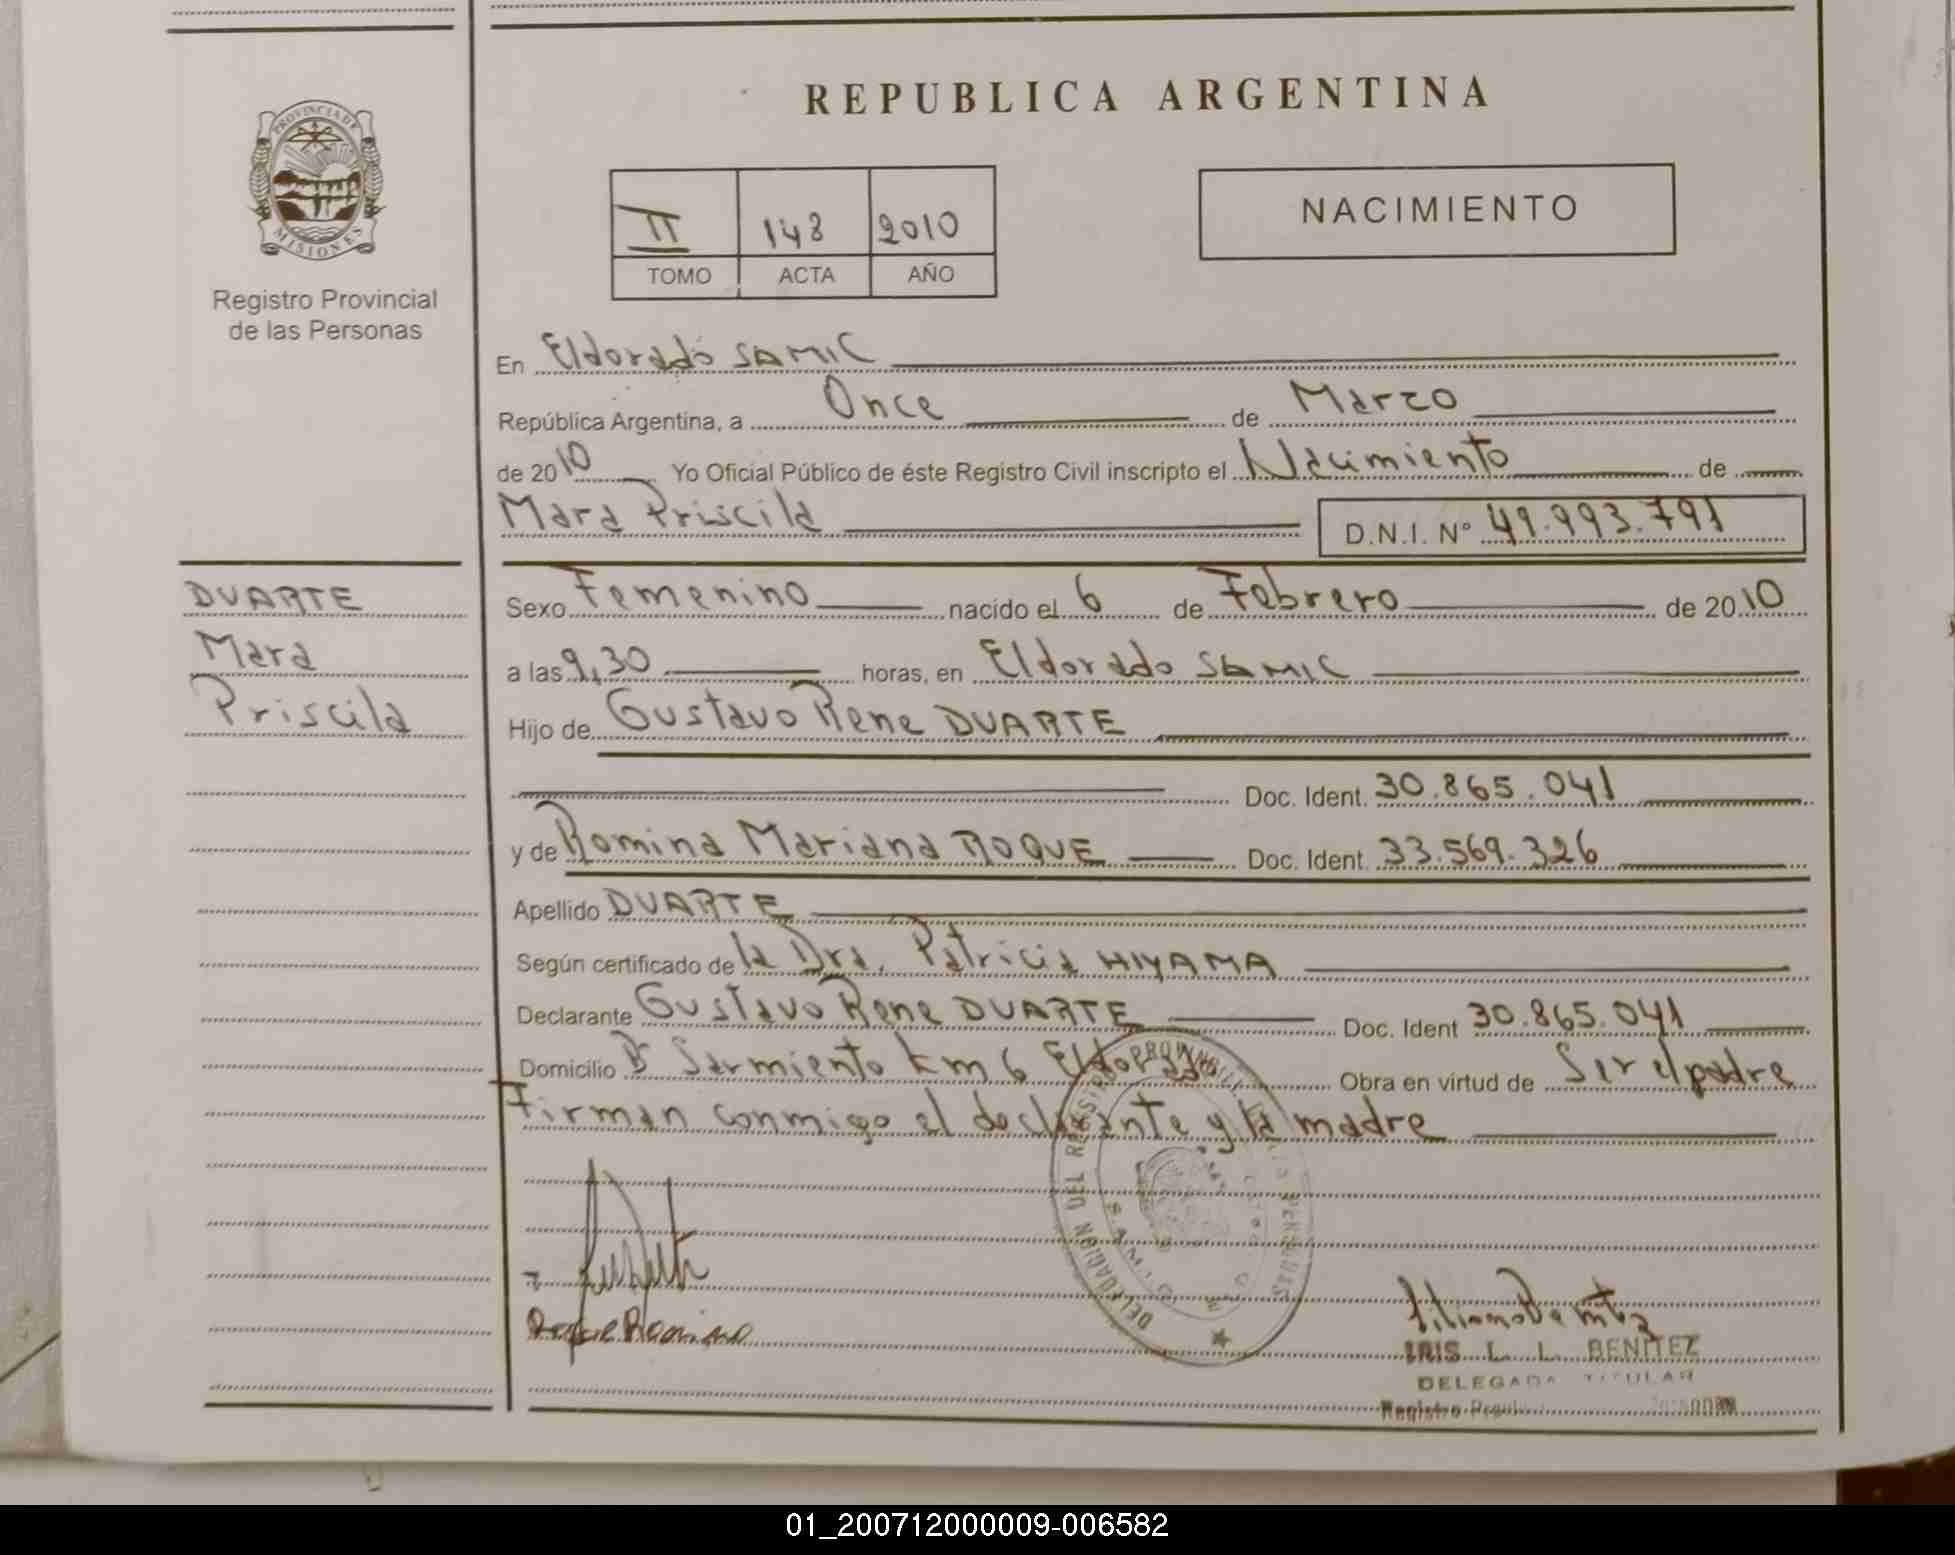 REPUBLICA ARGENTINA
PROVINCIA DE
MISIONES
Registro Provincial
de las Personas
II 148 2010
TOMO ACTA AÑO
NACIMIENTO
En Eldorado SAMIC
República Argentina, a Once de Marzo
de 2010 Yo Oficial Público de éste Registro Civil inscripto el Nacimiento de
Mara Priscila D.N.I. Nº 49.993.791
DUARTE
Mara
Priscila
Sexo Femenino nacido el 6 de Febrero de 2010
a las 9,30 horas, en Eldorado SAMIC
Hijo de Gustavo Rene DUARTE
Doc. Ident. 30.865.041
y de Romina Mariana ROQUE Doc. Ident. 33.569.326
Apellido DUARTE
Según certificado de la Dra. Patricia HIYAMA
Declarante Gustavo Rene DUARTE Doc. Ident 30.865.041
Domicilio Bº Sarmiento km 6 Eldorado Obra en virtud de Ser el padre
Firman conmigo el declarante y la madre
Roque Romina
IRIS L. L. BENITEZ
DELEGADA TITULAR
01_200712000009-006582